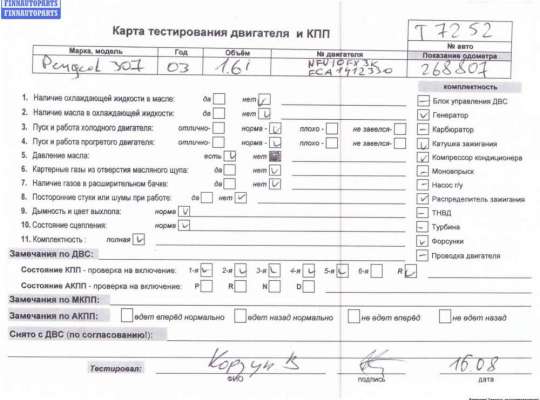 FINNAUTOPARTS
FINNAUTOPARTS
Карта тестирования двигателя и КПП
T 7252
Марка, модель Год Объём № двигателя № авто
Показание одометра
Peugeot 307 03 1.6i 268807
комплектность
1. Наличие охлаждающей жидкости в масле: да нет
Блок управления ДВС
2. Наличие масла в охлаждающей жидкости: да нет
Генератор
3. Пуск и работа холодного двигателя: отлично- норма - плохо - не завелся-
Карбюратор
4. Пуск и работа прогретого двигателя: отлично- норма - плохо - не завелся-
Катушка зажигания
5. Давление масла: есть нет
Компрессор кондиционера
6. Картерные газы из отверстия масляного щупа: да нет
Моновпрыск
7. Наличие газов в расширительном бачке: да нет
Насос г/у
8. Посторонние стуки или шумы при работе: да нет
Распределитель зажигания
9. Дымность и цвет выхлопа: норма
ТНВД
10. Состояние сцепления: норма
Турбина
11. Комплектность : полная
Форсунки
Замечания по ДВС:
Проводка двигателя
Состояние КПП - проверка на включение: 1-я 2-я 3-я 4-я 5-я 6-я R
Состояние АКПП - проверка на включение: P R N D
Замечания по МКПП:
Замечания по АКПП: едет вперёд нормально едет назад нормально не едет вперёд не едет назад
Снято с ДВС (по согласованию!):
Тестировал: Корзун В 16.08
ФИО подпись дата